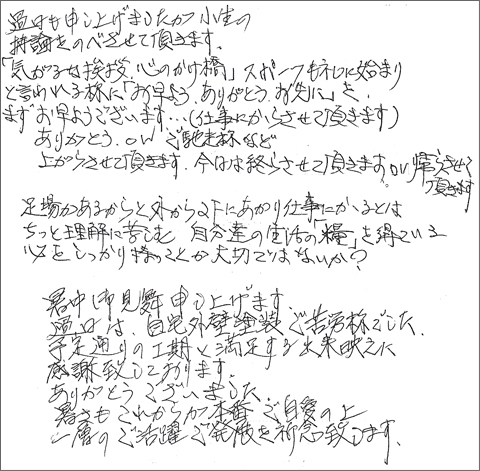 過日も申し上げましたが小生の
持論をのべさせて頂きます。
「気がるな挨拶、心のかけ橋」スポーツも礼に始まり
と言われる様に「お早よう、ありがとう、お先に」を、
まずお早ようございます…(仕事にかからせて頂きます)
ありがとう. or ご馳走様など
上がらせて頂きます、今日は終らせて頂きます。or 帰らせて
頂きます
足場があるからと外から2Fにあがり仕事にかかるとは
ちっと理解に苦しむ 自分達の生活の「糧」を得ている
心をしっかり持つことが大切ではないか?
暑中御見舞申し上げます
過日は、自宅外壁塗装ご苦労様でした、
予定通りの工期と満足する出来映えに
感謝致しております。
ありがとうございました、
暑さもこれからが本番ご自愛の上
一層のご活躍ご発展を祈念致します、